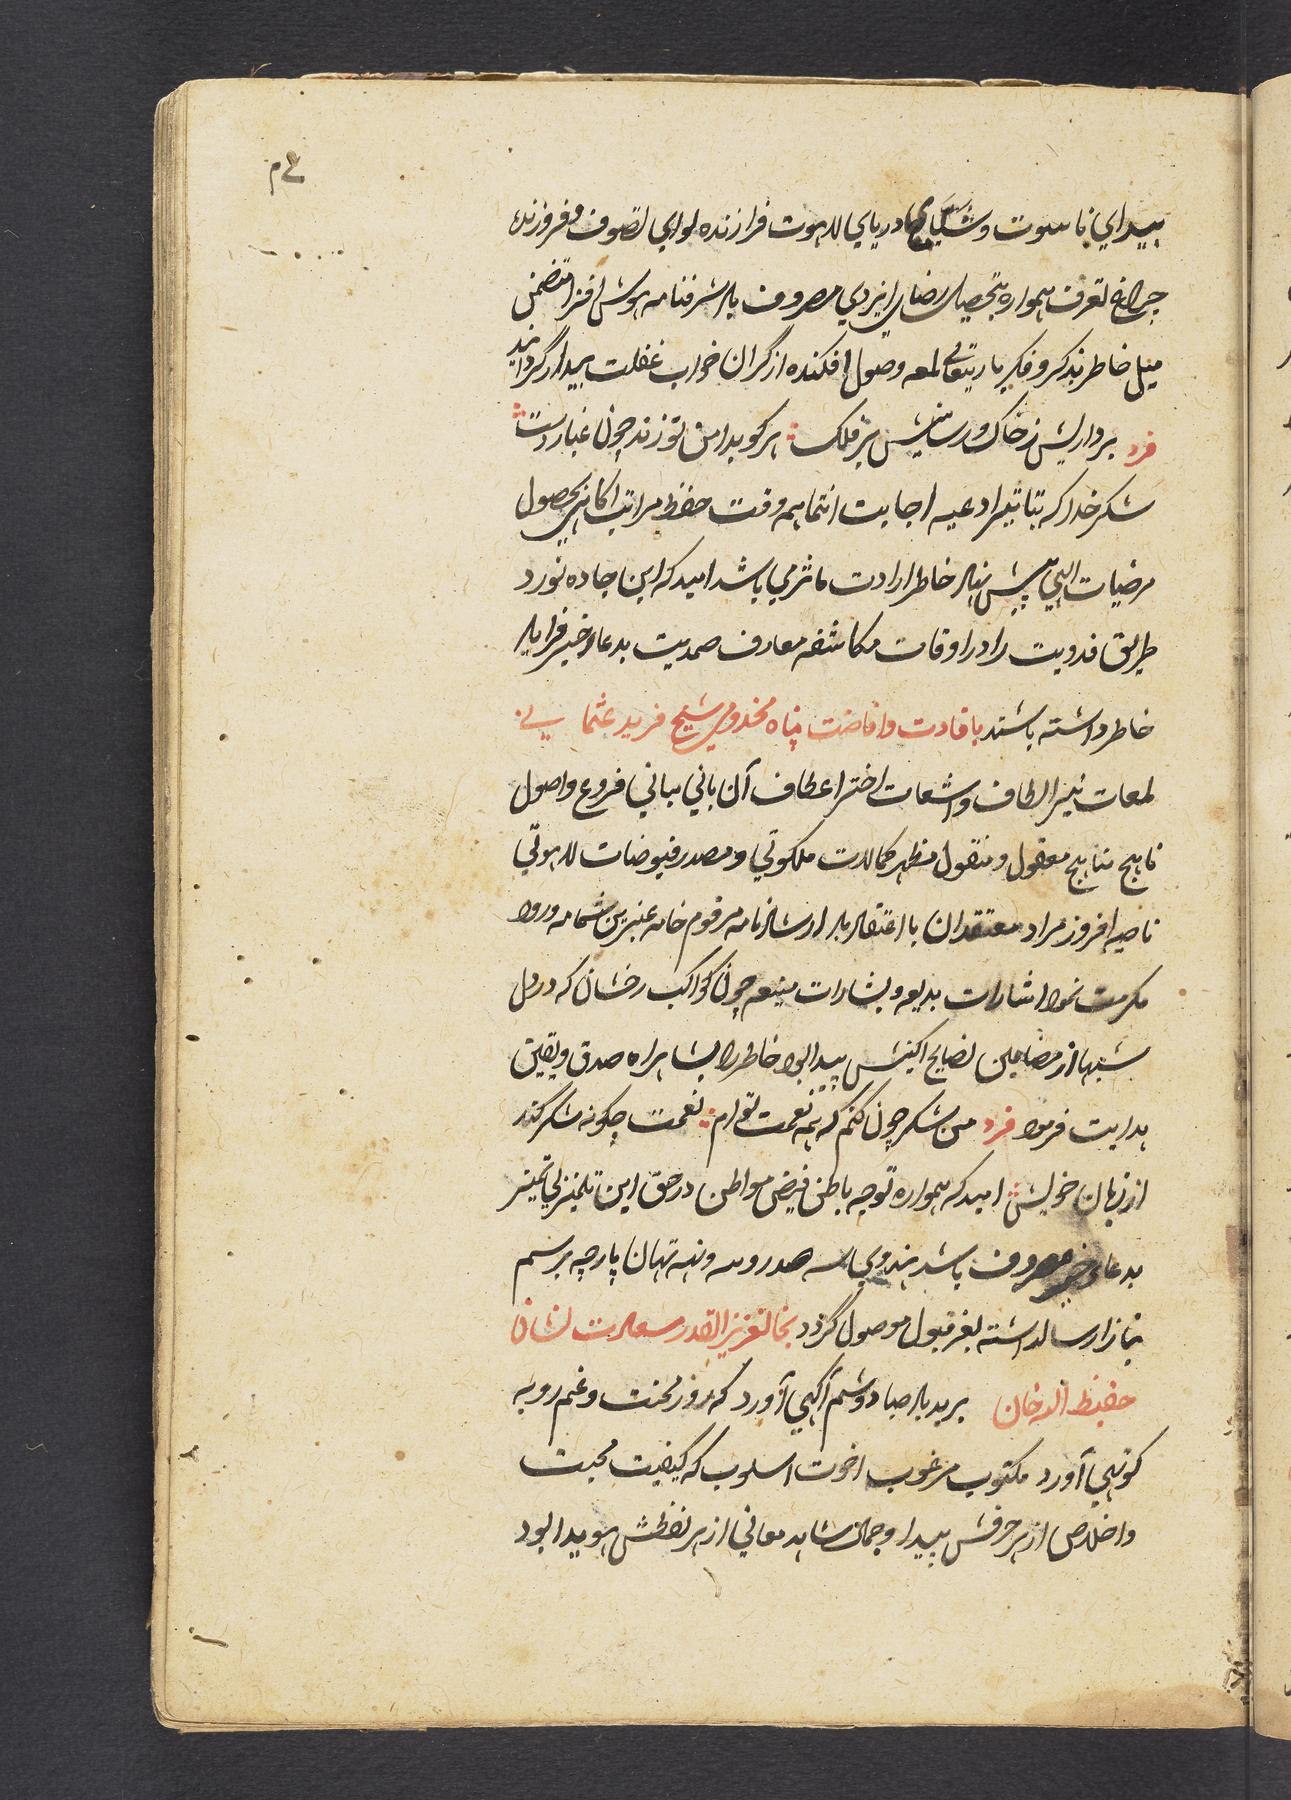 بیدای ناسوت و شناور دریای لاهوت فرازنده لوای تصوف و فروزنده
چراغ تعرف همواره بتحصیل رضای ایزدی مصروف باد شرفنامه هوش افزا متضمن
میل خاطر بذکر و فکر باریتعالی لمعه وصول افکنده از گران خواب غفلت بیدار گردانید
فرد برداریش ز خاک و رسانیش بر فلک هر کو بدامن تو زند چون غبار دست
شکر خدا که بتاثیر ادعیه اجابت انتما همه وقت حفظ مراتب آگاهی بحصول
مرضیات الهی پیش نهاد خاطر ارادت ماثر می باشد امید که این جاده نورد
طریق فدویت را در اوقات مکاشفه معارف صمدیت بدعاء خیر فرایاد
خاطر داشته باشند بافادت و افاضت پناه مخدومی شیخ فرید عثمانی
لمعات نیر الطاف و اشعات اختر اعطاف آن بانی مبانی فروع و اصول
ناهج مناهج معقول و منقول مظهر کمالات ملکوتی و مصدر فیوضات لاهوتی
ناصیه افروز مراد معتقدان با اعتقاد باد ارشاد نامه مرقوم خامه عنبرین شمامه ورود
مکرمت نمود اشارات بدیعه و بشارات منیعه چون کواکب رخشان که در دل
شبها از مضامین نصایح آگینش پیدا بود خاطر را بشاهراه صدق و یقین
هدایت فرمود فرد من شکر چون کنم که همه نعمت توام نعمت چگونه شکر کند
از زبان خویش امید که همواره توجه باطن فیض مواطن در حق این تلمیذ بی تمیز
بدعاء خیر مصروف باشد هندوی صد روپیه و نه تهان پارچه برسم
نیاز ارسال داشته بعز قبول موصول گردد بخانعزیز القدر سعادت نشان
حفیظ الله خان برید باد صبا دوشم آگهی آورد که روز محنت و غم رو به
کوتهی آورد مکتوب مرغوب اخوت اسلوب که کیفیت محبت
و اخلاص از هر حرفش پیدا و جمال شاهد معانی از هر نقطش هویدا بود